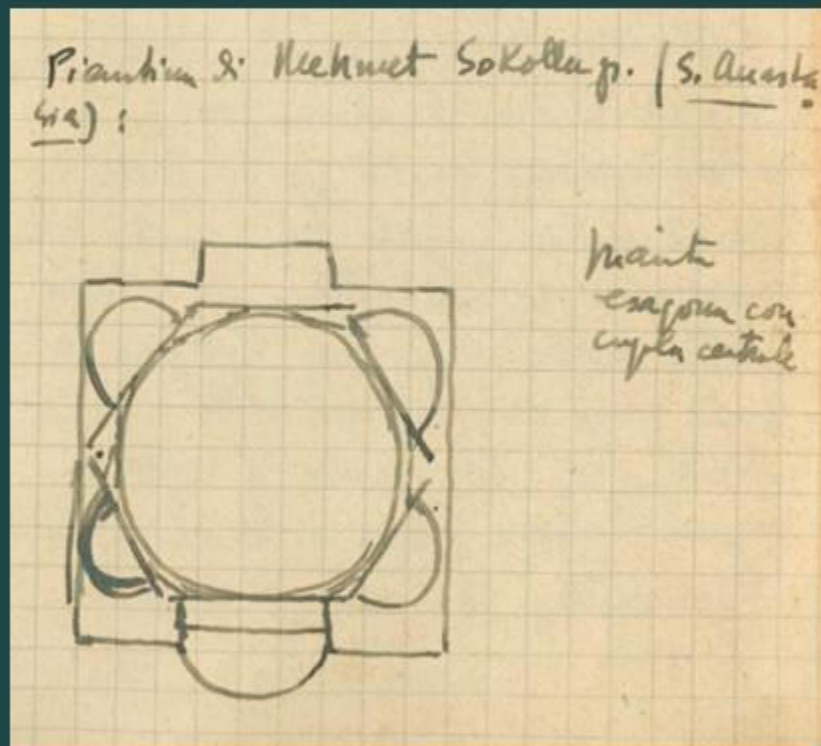 Piantina di Mehmet Sokollu p. (S. Anasta
sia) :
pianta
esagona con
cupola centrale